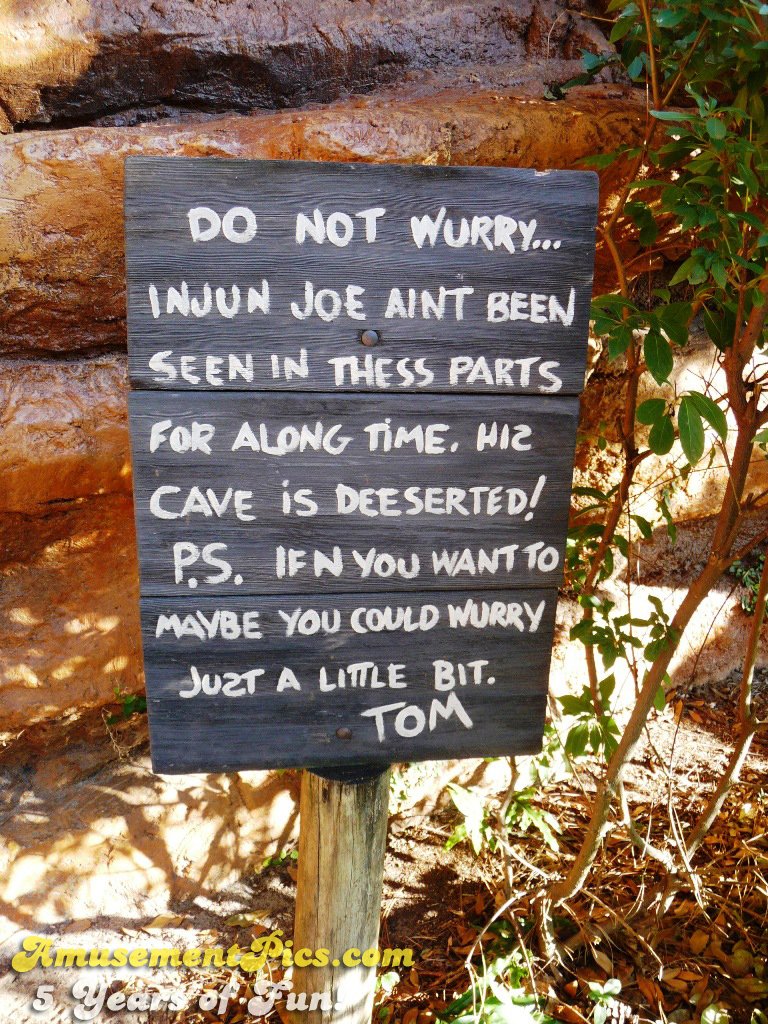 DO NOT WURRY...
INJUN JOE AINT BEEN
SEEN IN THESS PARTS
FOR ALONG TIME. HIS
CAVE iS DEESERTED!
P.S. IFN YOU WANT TO
MAYBE YOU COULD WURRY
JUST A LITTLE BIT.
TOM
AmusementPics.com
5 Years of Fun!